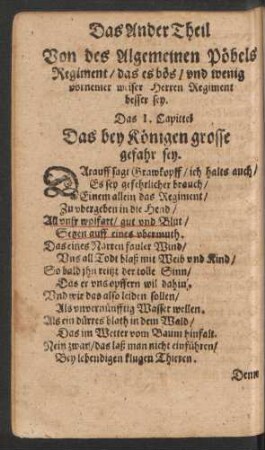 Das Ander Theil
Von des Algemeinen Pöbels
Regiment / das es bös / vnd wenig
vornemer weiser Herren Regiment
besser sey.
Das 1. Capittel
Das bey Königen grosse
gefahr sey.
DArauff sagt Grawkopff / ich halts auch /
Es sey gefehrlicher brauch /
Einem allein das Regiment /
Zu vbergeben in die Hend /
All vnsr wolfart / gut vnd Blut /
Setzen auff eines vbermuth.
Das eines Narren fauler Wind /
Vns all Todt blaß mit Weib vnd Kind /
So bald jhn reitzt der tolle Sinn /
Das er vns opffern wil dahin.
Vnd wir das also leiden sollen /
Als vnvernünfftig Wasser wellen.
Als ein dürres blath in dem Wald /
Das im Wetter vom Baum hinfalt.
Nein zwar / das laß man nicht einführen /
Bey lebendigen klugen Thieren.
Denn